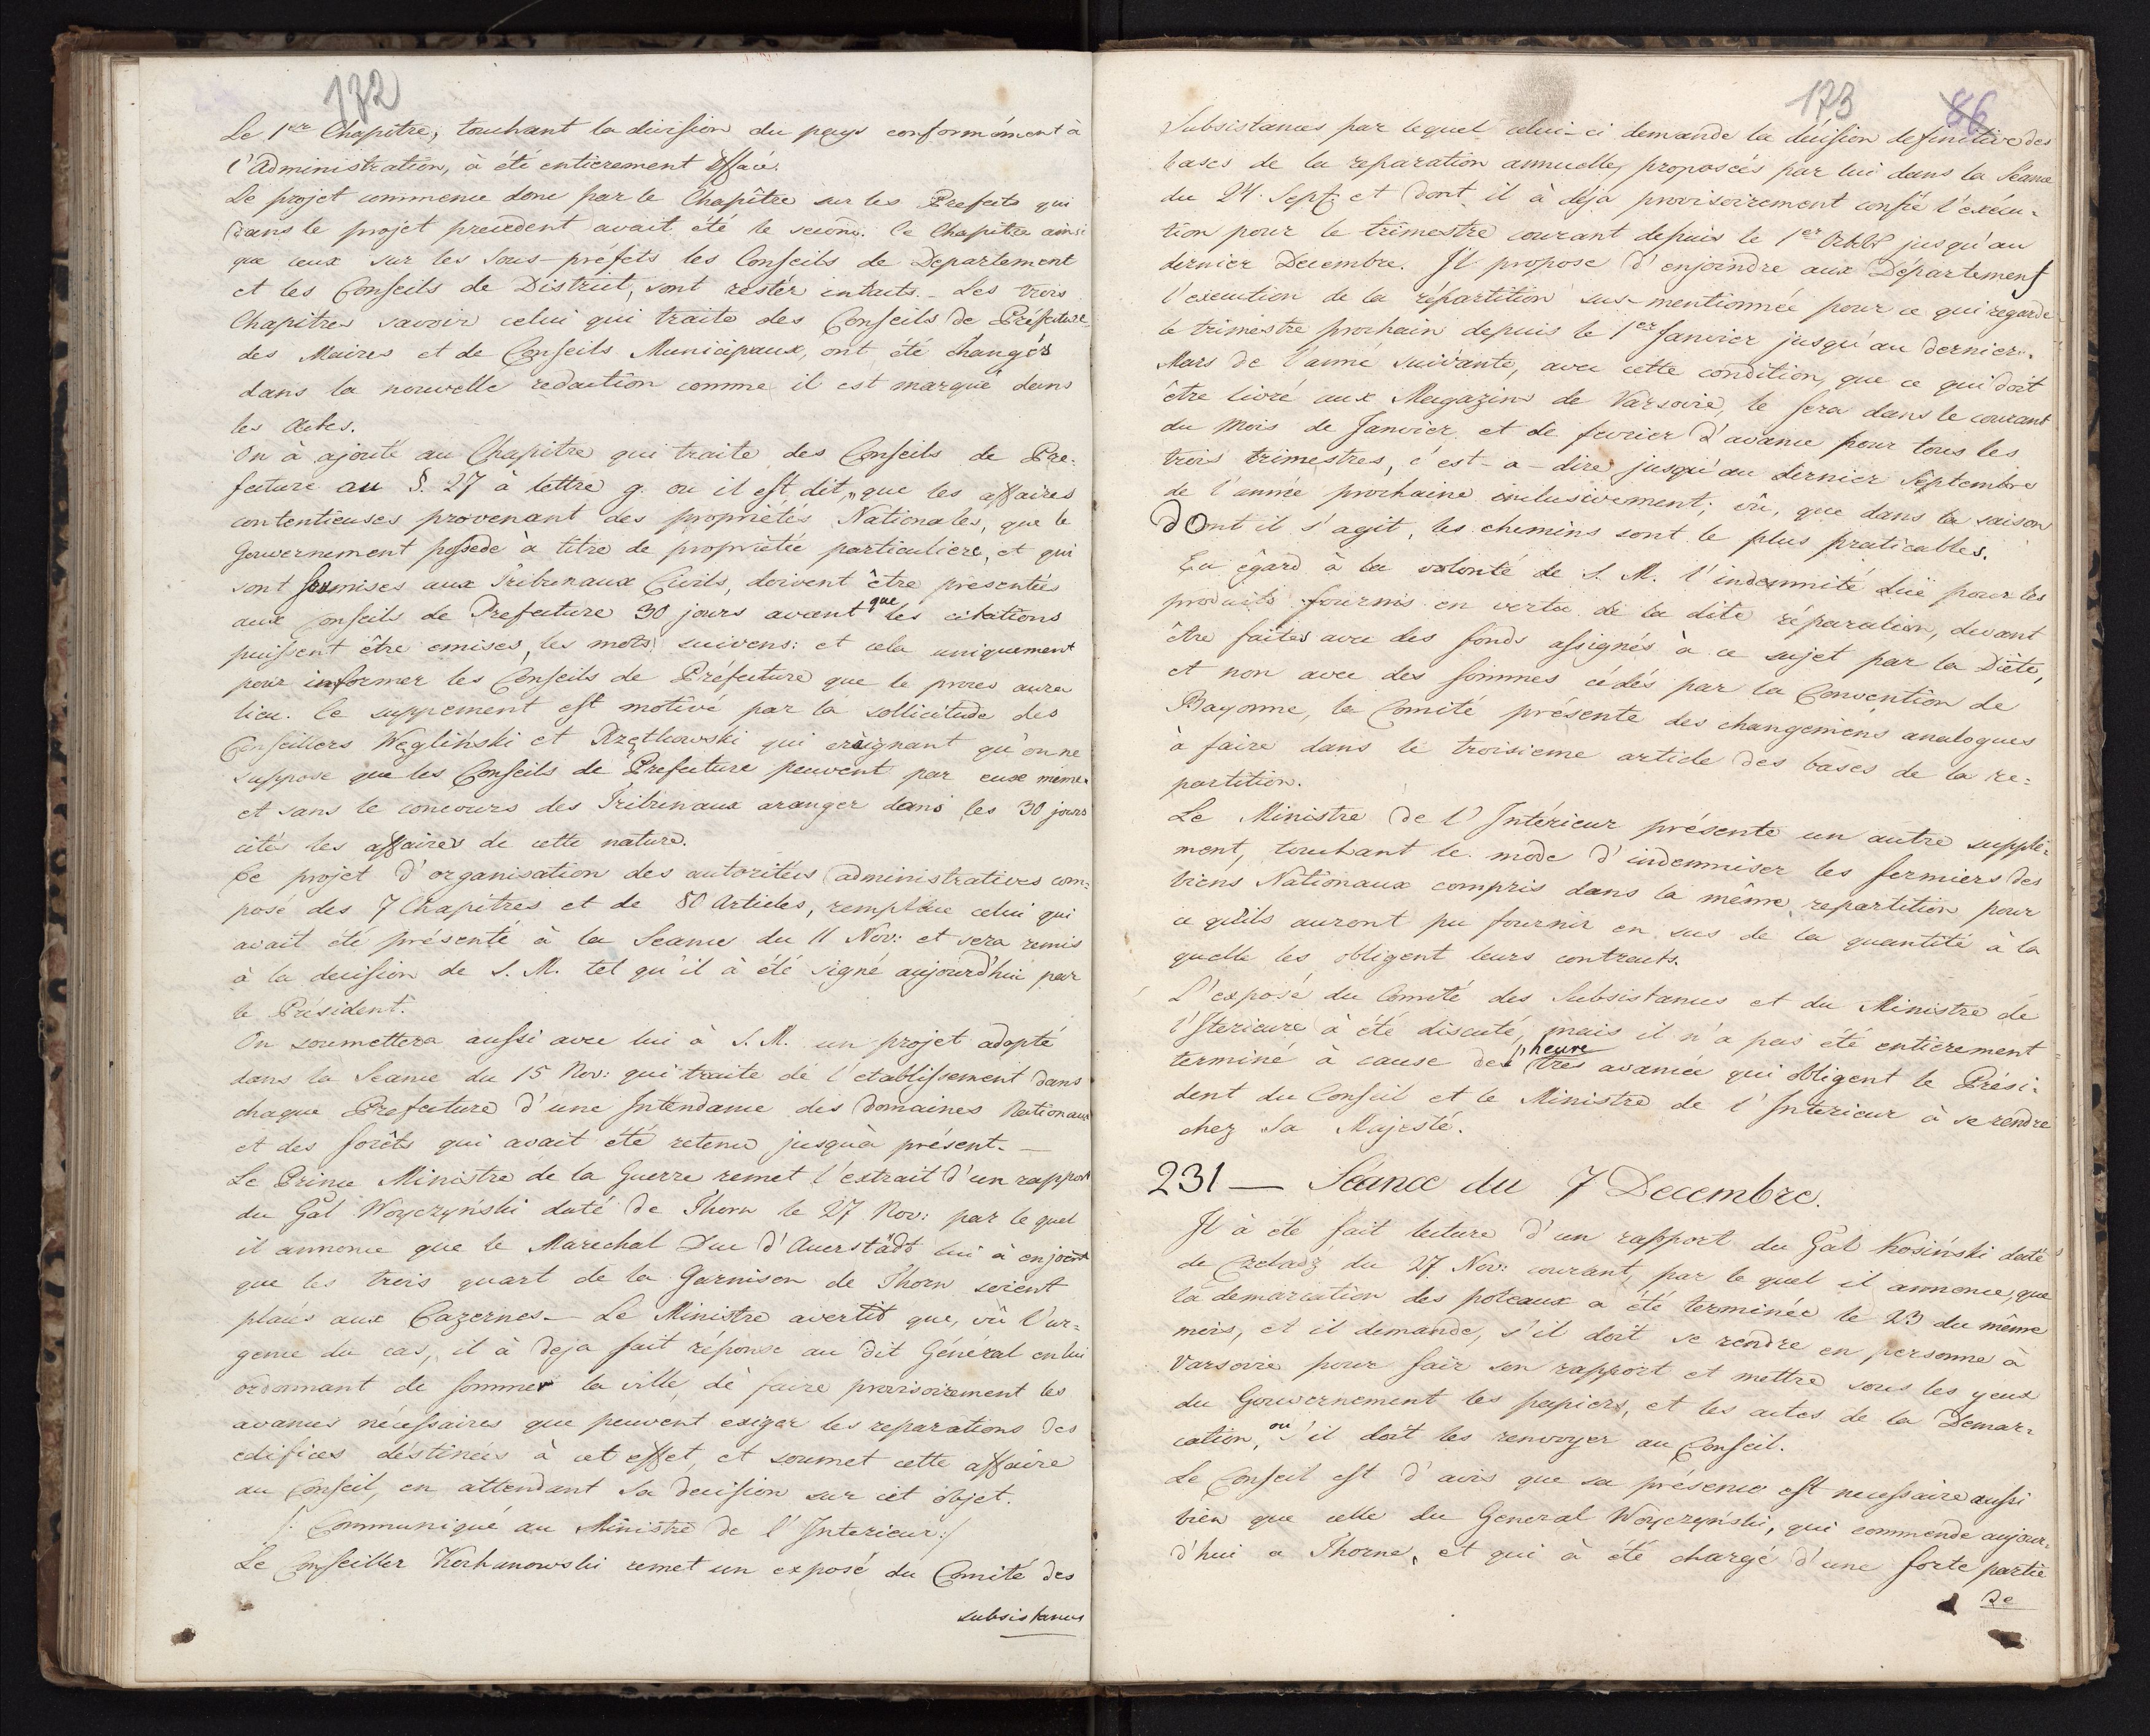 172
Le 1er Chapitre, touchant la division du pays conformément à
l'Administration, à été entierement effacé.
Le projet commence donc par le Chapître sur les Prefects qui
dans le projet precedent avait été le second. Ce Chapitre ainsi
que ceux sur les Sous-préfets les Conseils de Departement
et les Conseils de District, sont restér intacts. Les trois
Chapitres savoir celui qui traite des Conseils de Préfecture,
des Maires et de Conseils Municipaux, ont été changés
dans la nouvelle redaction comme il est marqué dans
les Actes.
On à ajouté au Chapitre que traite des Conseils de Pre=
fecture au §. 27 à lettre g. ou il est dit, "que les affaires
contentieuses provenant des proprietés Nationales, que le
Gouvernement possede à titre de propriétée particulieré, et qui
sont soumises aux Tribunaux Civils, doivent être presentées
aux Conseils de Prefecture 30 jours avant que les citations
puissent être emises, les mots suivens: et cela uniquement
pour informer les Conseils de Préfecture que le proces aura
lieu. Ce suppement est motivé par la sollicitude des
Conseillers Węgliński et Rzętkowski qui craignant qu'on ne
suppose que les Conseils de Prefecture peuvent par eux même.
et sans le concours des Tribunaux aranger dans les 30 jours
cités les affaires de cette nature.
Ce projet d'organisation des autoritées administratives com=
posé des 7 Chapitres et de 80 Articles, remplace celui qui
avait été présenté à la Seance du 11 Nov: et sera remis
à la decision de S. M. tel qu'il à été signé aujourd'hui par
le Président.
On soumettera aussi avec lui à S. M. un projet adopté
dans la Seance du 15 Nov: qui traite de l'etablissement dans
chaque Prefecture d'une Intendance des domaines Nationaux
et des forêts qui avait été retenu jusqu'à présent. —
Le Prince Ministre de la Guerre remet l'extrait d'un rapport
du Gal Woyczyński daté de Thorn le 27 Nov: par le quel
il annonce que le Marechal Duc d'Auerstädt lui à enjoint
que les trois quart de la Garnison de Thorn soient
placés aux Cazernes — Le Ministre avertit que, vû l'ur=
gence du cas, il à deja fait réponse au dit Général en lui
ordonnant de sommer la ville, de faire provisoirement les
avances nécessaires que peuvent exiger les reparations des
edifices déstinées à cet effet, et soumet cette affaire
au Conseil, en attendant sa decision sur cet objet.
/: Communiqué au Ministre de l'Interieur :/
Le Conseiller Kochanowski remet un exposé du Comité des
subsistances
173
86
Subsistances par lequel celui-ci demande la décision definitive des
bases de la reparation annuelle, proposées par lui dans la Seance
du 24. Sept: et dont il à déja provisoirement confié l'exécu=
tion pour le trimestre courant depuis le 1er Octob jusqu'au
dernier Decembre. Il propose d'enjoindre aux Départements
l'execution de la répartition sus-mentionnée pour ce qui regarde
le trimestre prochain depuis le 1er Janvier jusqu'au dernier.
Mars de l'anné suivante, avec cette condition, que ce qui doit
être livré aux Magazins de Varsovie, le sera dans le courant
du Mois de Janvier et de fevrier d'avance pour tous les
trois trimestres, c'est-a-dire jusqu'au dernier Septembre
de l'année prochaine inclusivement; vû, que dans la saison
dont il s'agit, les chemins sont le plus praticables.
Eu égard à la volonté de S. M. l'indemnité düe pour les
produits fournis en vertu de la dite réparation, devant
être faites avec des fonds assignés à ce sujet par la Diète,
et non avec des sommes cédés par la Convention de
Bayonne, le Comité présente des changemens analogues
à faire dans le troisieme article des bases de la re=
partition.
Le Ministre de l'Intérieur présente un autre supplé=
ment, touchant le mode d'indemniser les fermiers des
biens Nationaux compris dans la même repartition pour
ce qu'ils auront pu fournir en sus de la quantité à la
quelle les obligent leurs contracts.
L'exposé du Comité des Subsistances et du Ministre de
l'Iterieure à été discuté, mais il n'a pas été entierement
terminé à cause de l'heure tres avancée qui obligent le Prési=
dent du Conseil et le Ministre de l'Interieur à se rendre
chez Sa Majesté.
231 — Séance du 7 Decembre.
Il à été fait lecture d'un rapport du Gal Kosiński daté
de Czeladź du 27 Nov: courant, par le quel il annonce, que
la demarcation des poteaux a été terminée le 23 du même
mois, et il demande, s'il doit se rendre en personne à
Varsovie pour fair son rapport et mettre sous les yeux
du Gouvernement les papiers, et les actes de la Demar=
cation, ou s'il doit les renvoyer au Conseil.
Le Conseil est d'avis que sa présence est necessaire aussi
bien que celle du General Woyczyński, qui commende aujour=
d'hui a Thorne, et qui à été chargé d'une forte partie
de